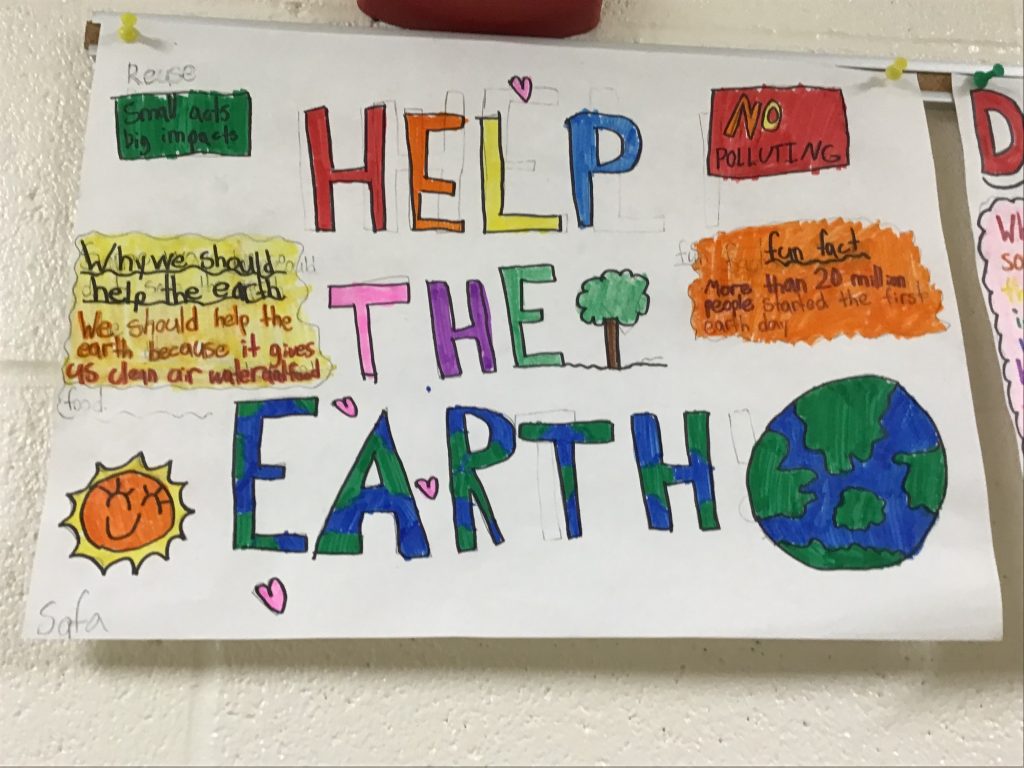 Reuse
Small acts
big impacts
HELP
NO
POLLUTING
Why we should
help the earth
We should help the
earth because it gives
us clean air water and food
food
THE
fun fact
More than 20 million
people started the first
earth day
EARTH
Safa
D
Wh
so